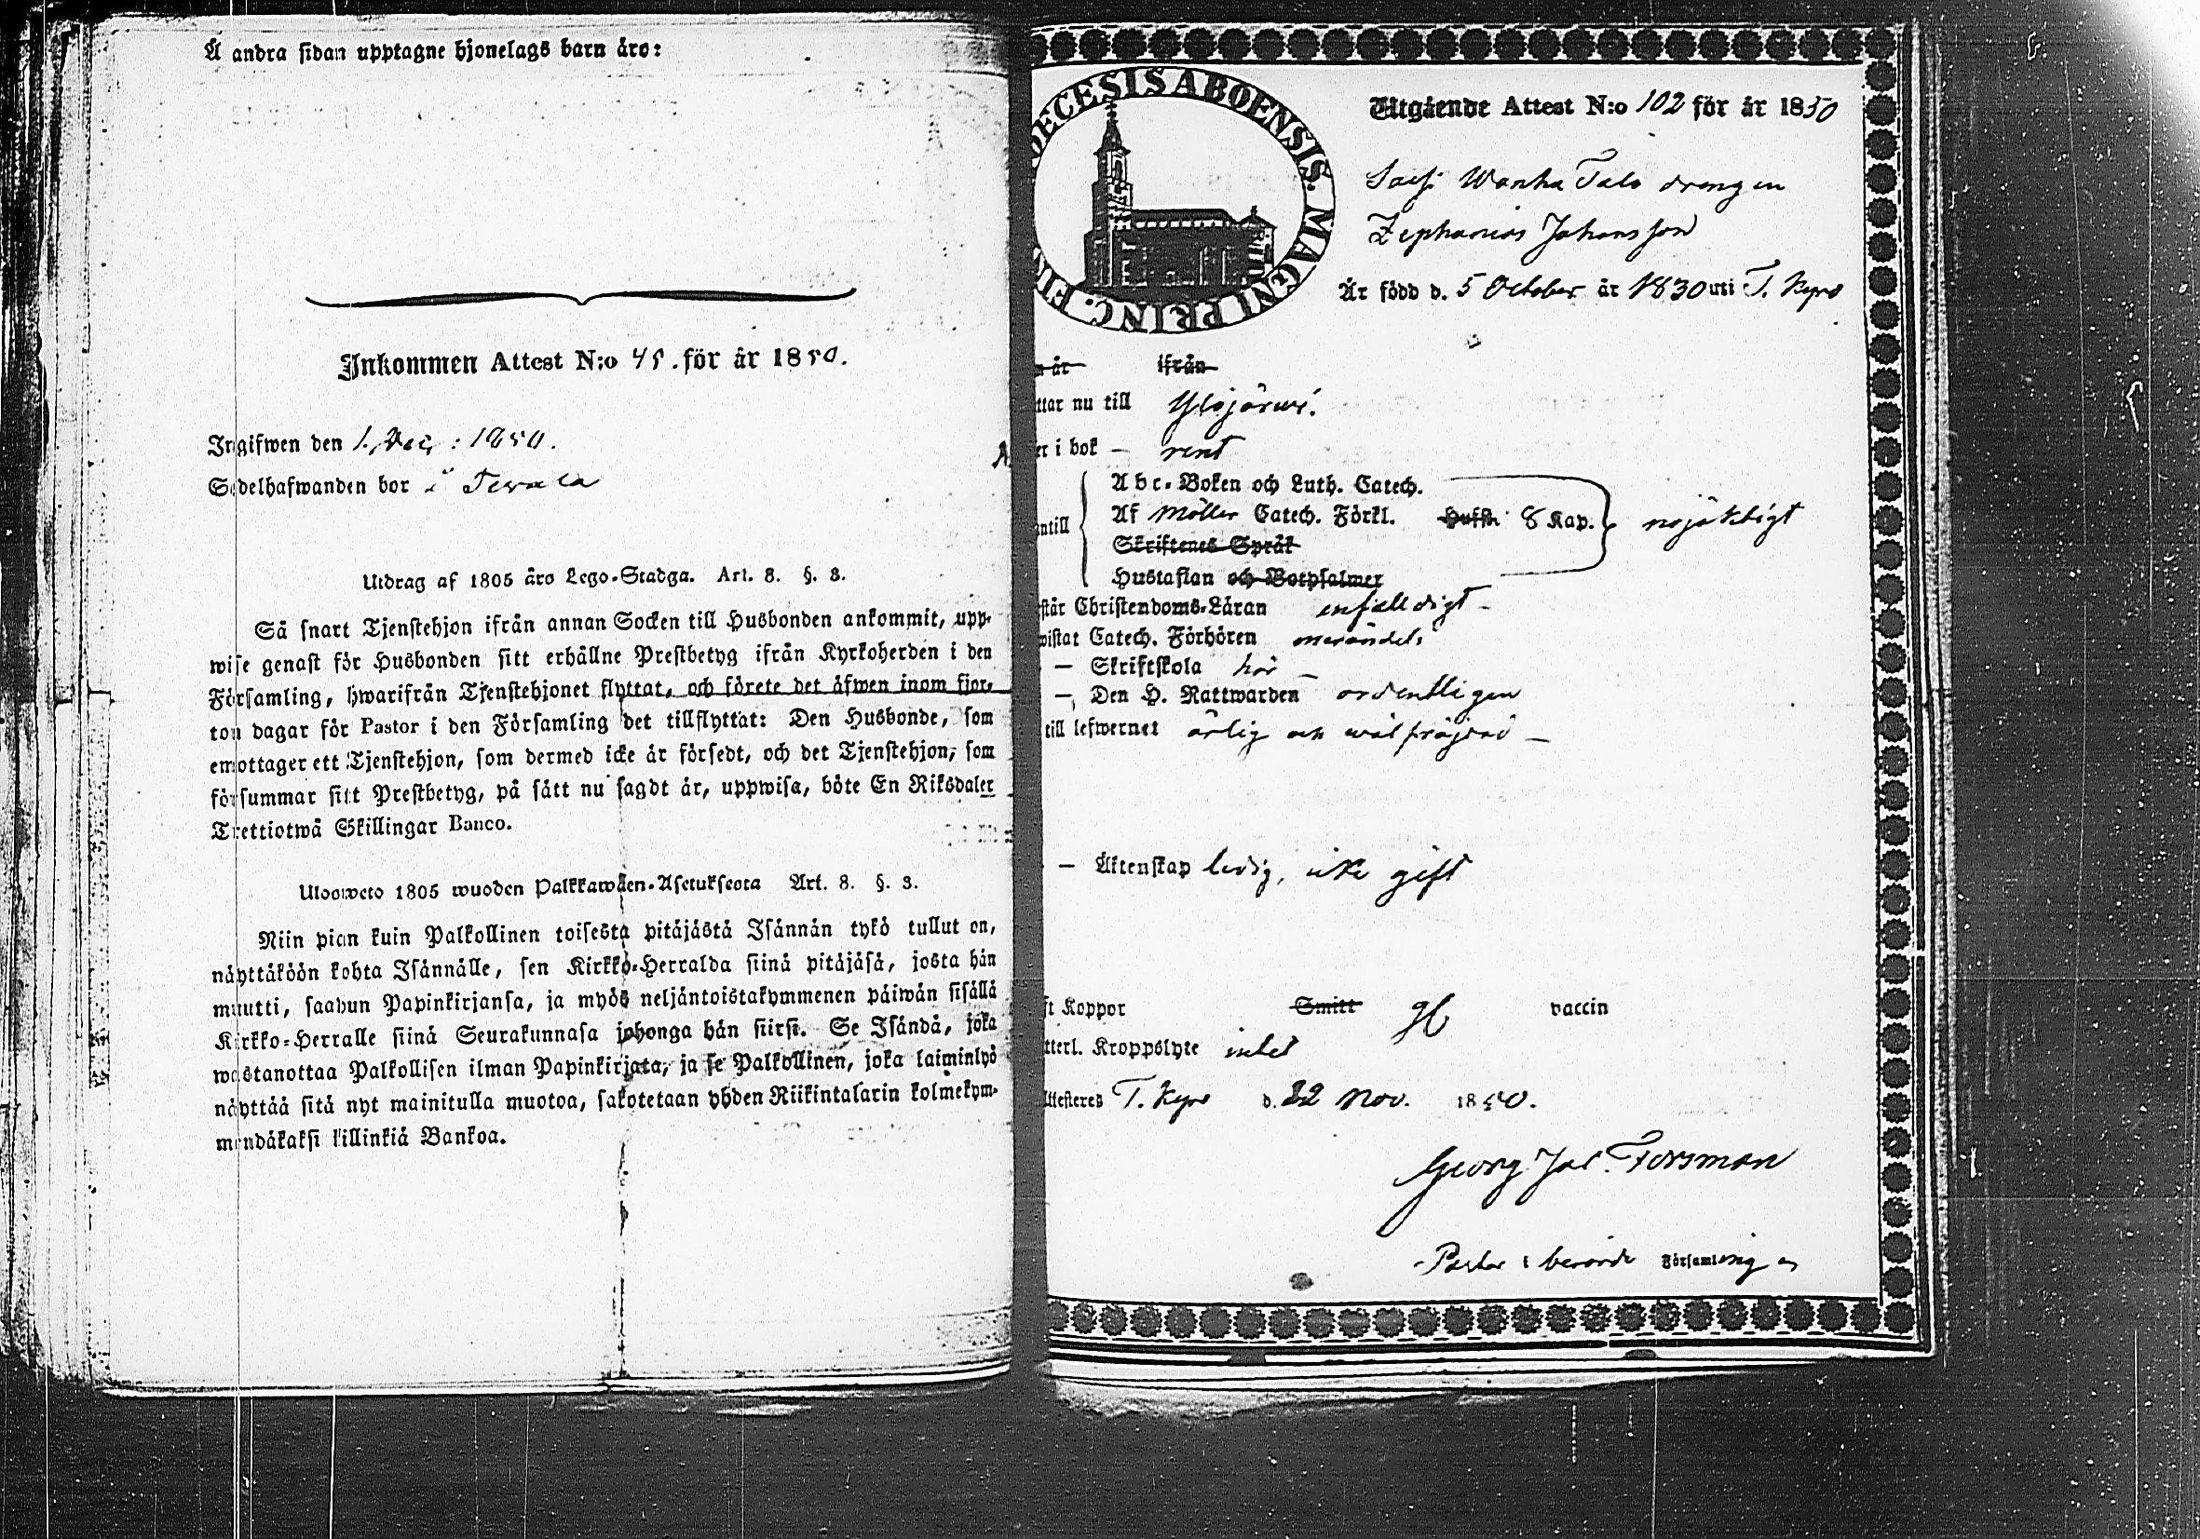 Å andra sidan upptagne hjonelags barn äro:
Inkommen Attest N:o 45. för år 1850.
Ingifwen den 1. Dec: 1850.
Sedelhafwanden bor i
Utdrag af 1805 års Lego-Stadga. Art. 8. §. 3.
Så snart Tjenstehjon ifrån annan Socken till Husbonden ankommit, upp-
wise genast för Husbonden sitt erhållne Prestbetyg ifrån Kyrkoherden i den
Församling, hwarifrån Tjenstehjonet flyttat, och förete det äfwen inom fjor-
ton dagar för Pastor i den Församling det tillflyttat: Den Husbonde, som
emottager ett Tjenstehjon, som dermed icke är försedt, och det Tjenstehjon, som
försummar sitt Prestbetyg, på sätt nu sagdt är, uppwisa, böte En Riksdaler
Trettiotwå Skillingar Banco.
Uloosweto 1805 wuoden Palkkawäen-Asetuksesta Art. 8. §. 3.
Niin pian kuin Palkollinen toisesta pitäjästä Isännän tykö tullut on,
näyttäköön kohta Isännälle, sen Kirkko-Herralda siinä pitäjäsä, josta hän
muutti, saadun Papinkirjansa, ja myös neljäntoistakymmenen päiwän sisällä
Kirkko-Herralle siinä Seurakunnasa johonga hän siirsi. Se Isändä, joka
wastanottaa Palkollisen ilman Papinkirjata, ja se Palkollinen, joka laiminlyö
näyttää sitä nyt mainitulla muotoa, sakotetaan yhden Riikintalarin kolmekym-
mendäkaksi killinkiä Bankoa.
DECESIS ABOENSIS. MAGNI PRINC. FIN
Utgående Attest N:o 102 för år 1850
Wanha Talo drengen
Zephanias Johansson
Är född d. 5 October år 1830 uti T. Kyro
år ifrån
ttar nu till Ylöjärwi.
er i bok – rent
Abc-Boken och Luth. Catech.
Af Möller Catech. Förkl. Hufst. 8 Kap. nöjaktigt
antill
Skriftenes Språk
Hustaflan och Botpsalmer
står Christendoms-Läran enfalldigt –
wistat Catech. Förhören merändels
– Skriftskola här –
– Den H. Nattwarden ordentligen
till lefwernet ärlig och wälfräjdad –
– Äktenskap ledig, icke gift
st Koppor Smitt vaccin
tterl. Kroppslyte intet
Attesteres T. Kyro d. 22 Nov. 1850.
Georg Jac. Forsman
Pastor i berörde Församling